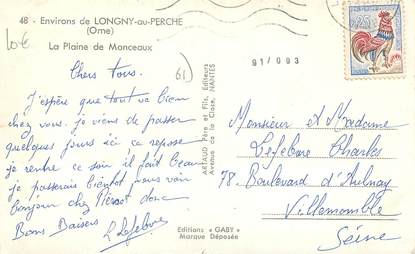 48 - Environs de LONGNY-au-PERCHE
(Orne)
La Plaine de Monceaux
61
Chers tous.
J'espère que tout va bien
chez vous. je viens de passer
quelques jours ici ce repose
je rentre ce soir il fait beau
je passerais bientôt vous voir
bonjour chez Pierrot donc
Bons Baisers
Lefebvre
ARTAUD Père et Fils, Editeurs
Avenue de la Close, NANTES
Editions « GABY »
Marque Déposée
91/093
0,25
Monsieur et Madame
Lefebvre Charles
78. Boulevard d'Aulnay
Villemomble
Seine